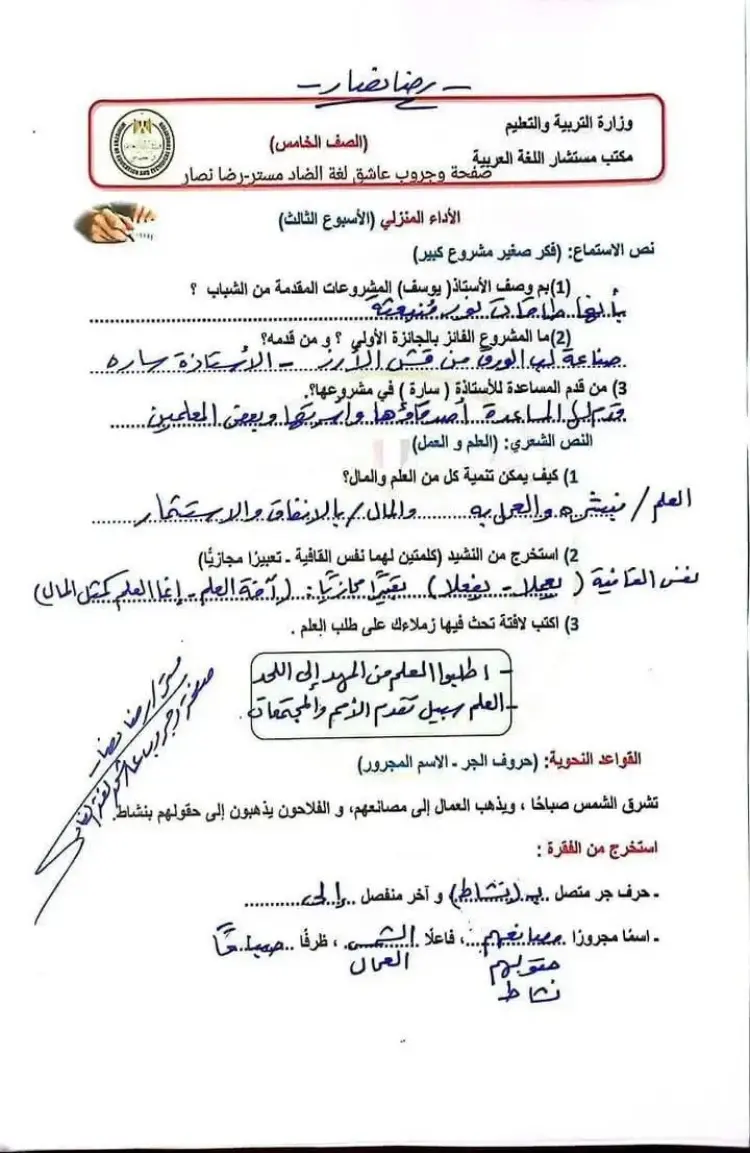 - رضا نصار -
وزارة التربية والتعليم
(الصف الخامس)
مكتب مستشار اللغة العربية
صفحة وجروب عاشق لغة الضاد مستر-رضا نصار
الأداء المنزلي (الأسبوع الثالث)
نص الاستماع: (فكر صغير مشروع كبير)
(1)بم وصف الأستاذ( يوسف) المشروعات المقدمة من الشباب ؟
بأنها طاقات نور منبعثة
(2)ما المشروع الفائز بالجائزة الأولي ؟ و من قدمه؟
صناعة لب الورق من قش الأرز - الأستاذة ساره
3) من قدم المساعدة للأستاذة ( سارة ) في مشروعها؟.
قدم لها المساعدة أصدقاؤها وأسرتها وبعض المعلمين
النص الشعري: (العلم و العمل)
1) كيف يمكن تنمية كل من العلم والمال؟
العلم / بنشره والعمل به والمال / بالانفاق والاستثمار
2) استخرج من النشيد (كلمتين لهما نفس القافية ـ تعبيرًا مجازيًا)
نفس القافية ( يعجلا - يفعلا ) تعبيرًا مجازيًا : (آفة العلم - إنما العلم كمثل المال)
3) اكتب لافتة تحث فيها زملاءك على طلب العلم .
- اطلبوا العلم من المهد إلى اللحد
- العلم سبيل تقدم الأمم والمجتمعات
مستر / رضا نصار
صفحة وجروب عاشق لغة الضاد
القواعد النحوية: (حروف الجر ـ الاسم المجرور)
تشرق الشمس صباحًا ، ويذهب العمال إلى مصانعهم، و الفلاحون يذهبون إلى حقولهم بنشاط.
استخرج من الفقرة :
ـ حرف جر متصل بـ (بنشاط) و آخر منفصل إلى
ـ اسمًا مجرورًا مصانعهم ، فاعلًا الشمس ، ظرفًا صباحًا
حقولهم العمال
نشاط